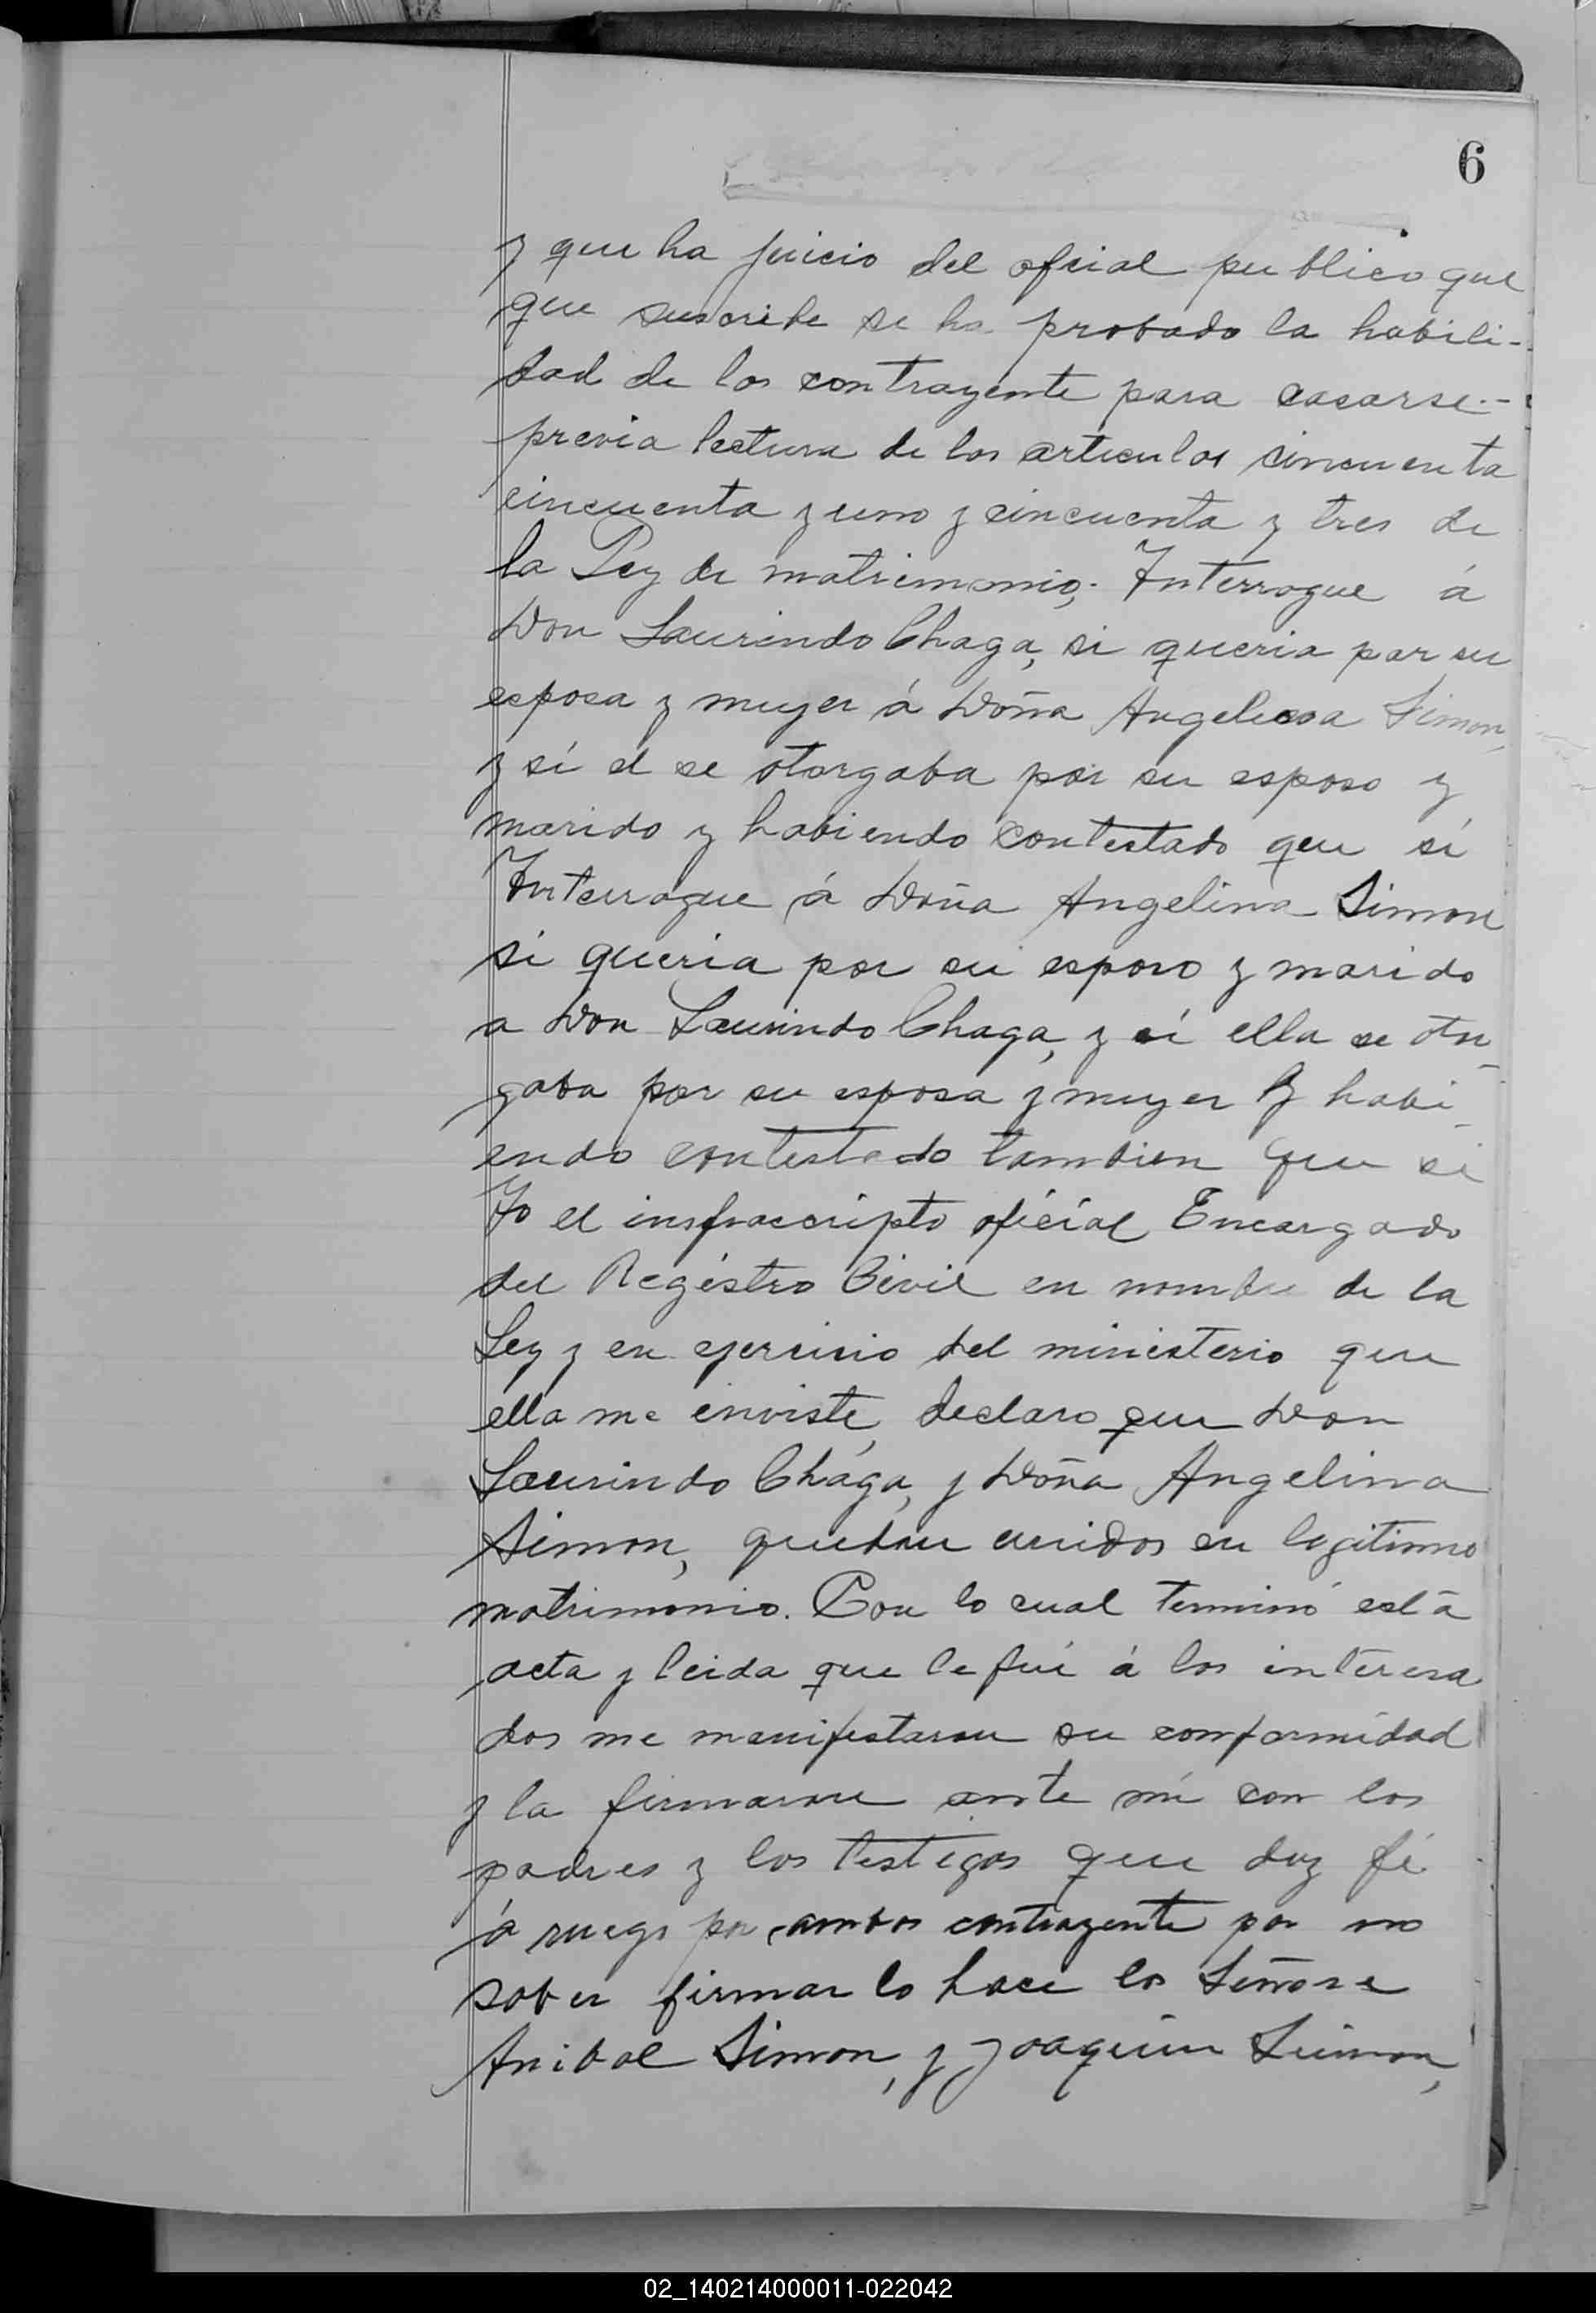 6
y que ha juicio del ofcial publico que
que suscribe se ha probado la habili-
dad de los contrayente para casarse.-
previa lectura de los articulos sincuenta
cincuenta y uno y cincuenta y tres de
la Ley de matrimonio; Interrogue á
Don Laurindo Chaga, si queria por su
esposa y muger á Doña Angelina Simon,
y sí el se otorgaba por su esposo y
marido y habiendo contestado que sí
Interrogue á Doña Angelina Simon
si queria por su esposo y marido
a Don Laurindo Chaga, y sí ella se otor-
gaba por su esposa y muger y habi-
endo contestado tambien que si
Yo el insfraccripto oficial Encargado
del Registro Civil en nombre de la
Ley y en ejercisio del ministerio que
ella me enviste, declaro que Don
Laurindo Chaga, y Doña Angelina
Simon, quedan unidos en legitimo
matrimonio. Con lo cual terminó está
acta y leida que le fué á los interesa
dos me manifestaron su conformidad
y la firmaron ante mí con los
padres y los testigos que doy fé
á ruego por ambos contrayente por no
saber firmar lo hace los Señore
Anibal Simon, y Joaquin Simon,
02_140214000011-022042